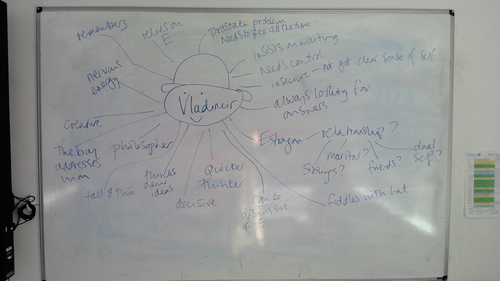 remembers
relies on
E
prostate problem
needs to pee all the time.
insists on waiting
needs control
insecure - not got clear sense of self
always looking for
answers
nervous
energy
Vladimir
creative
The boy
addresses
him
philosopher
tall & thin
thinks
new
ideas
decisive
Quicker
thinker
can be
dismissive
of E
fiddles with hat
Estragon
relationship?
Siblings?
marital?
friends?
dual
self?